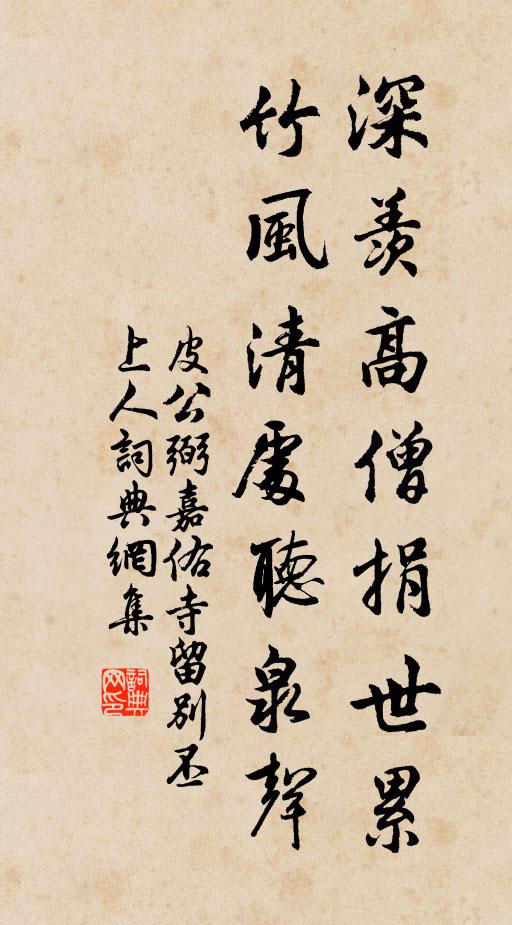 深羨高僧捐世累
竹風清處聽泉聲
皮公弼嘉佑寺留別丕
上人詞典網集
詞典網印